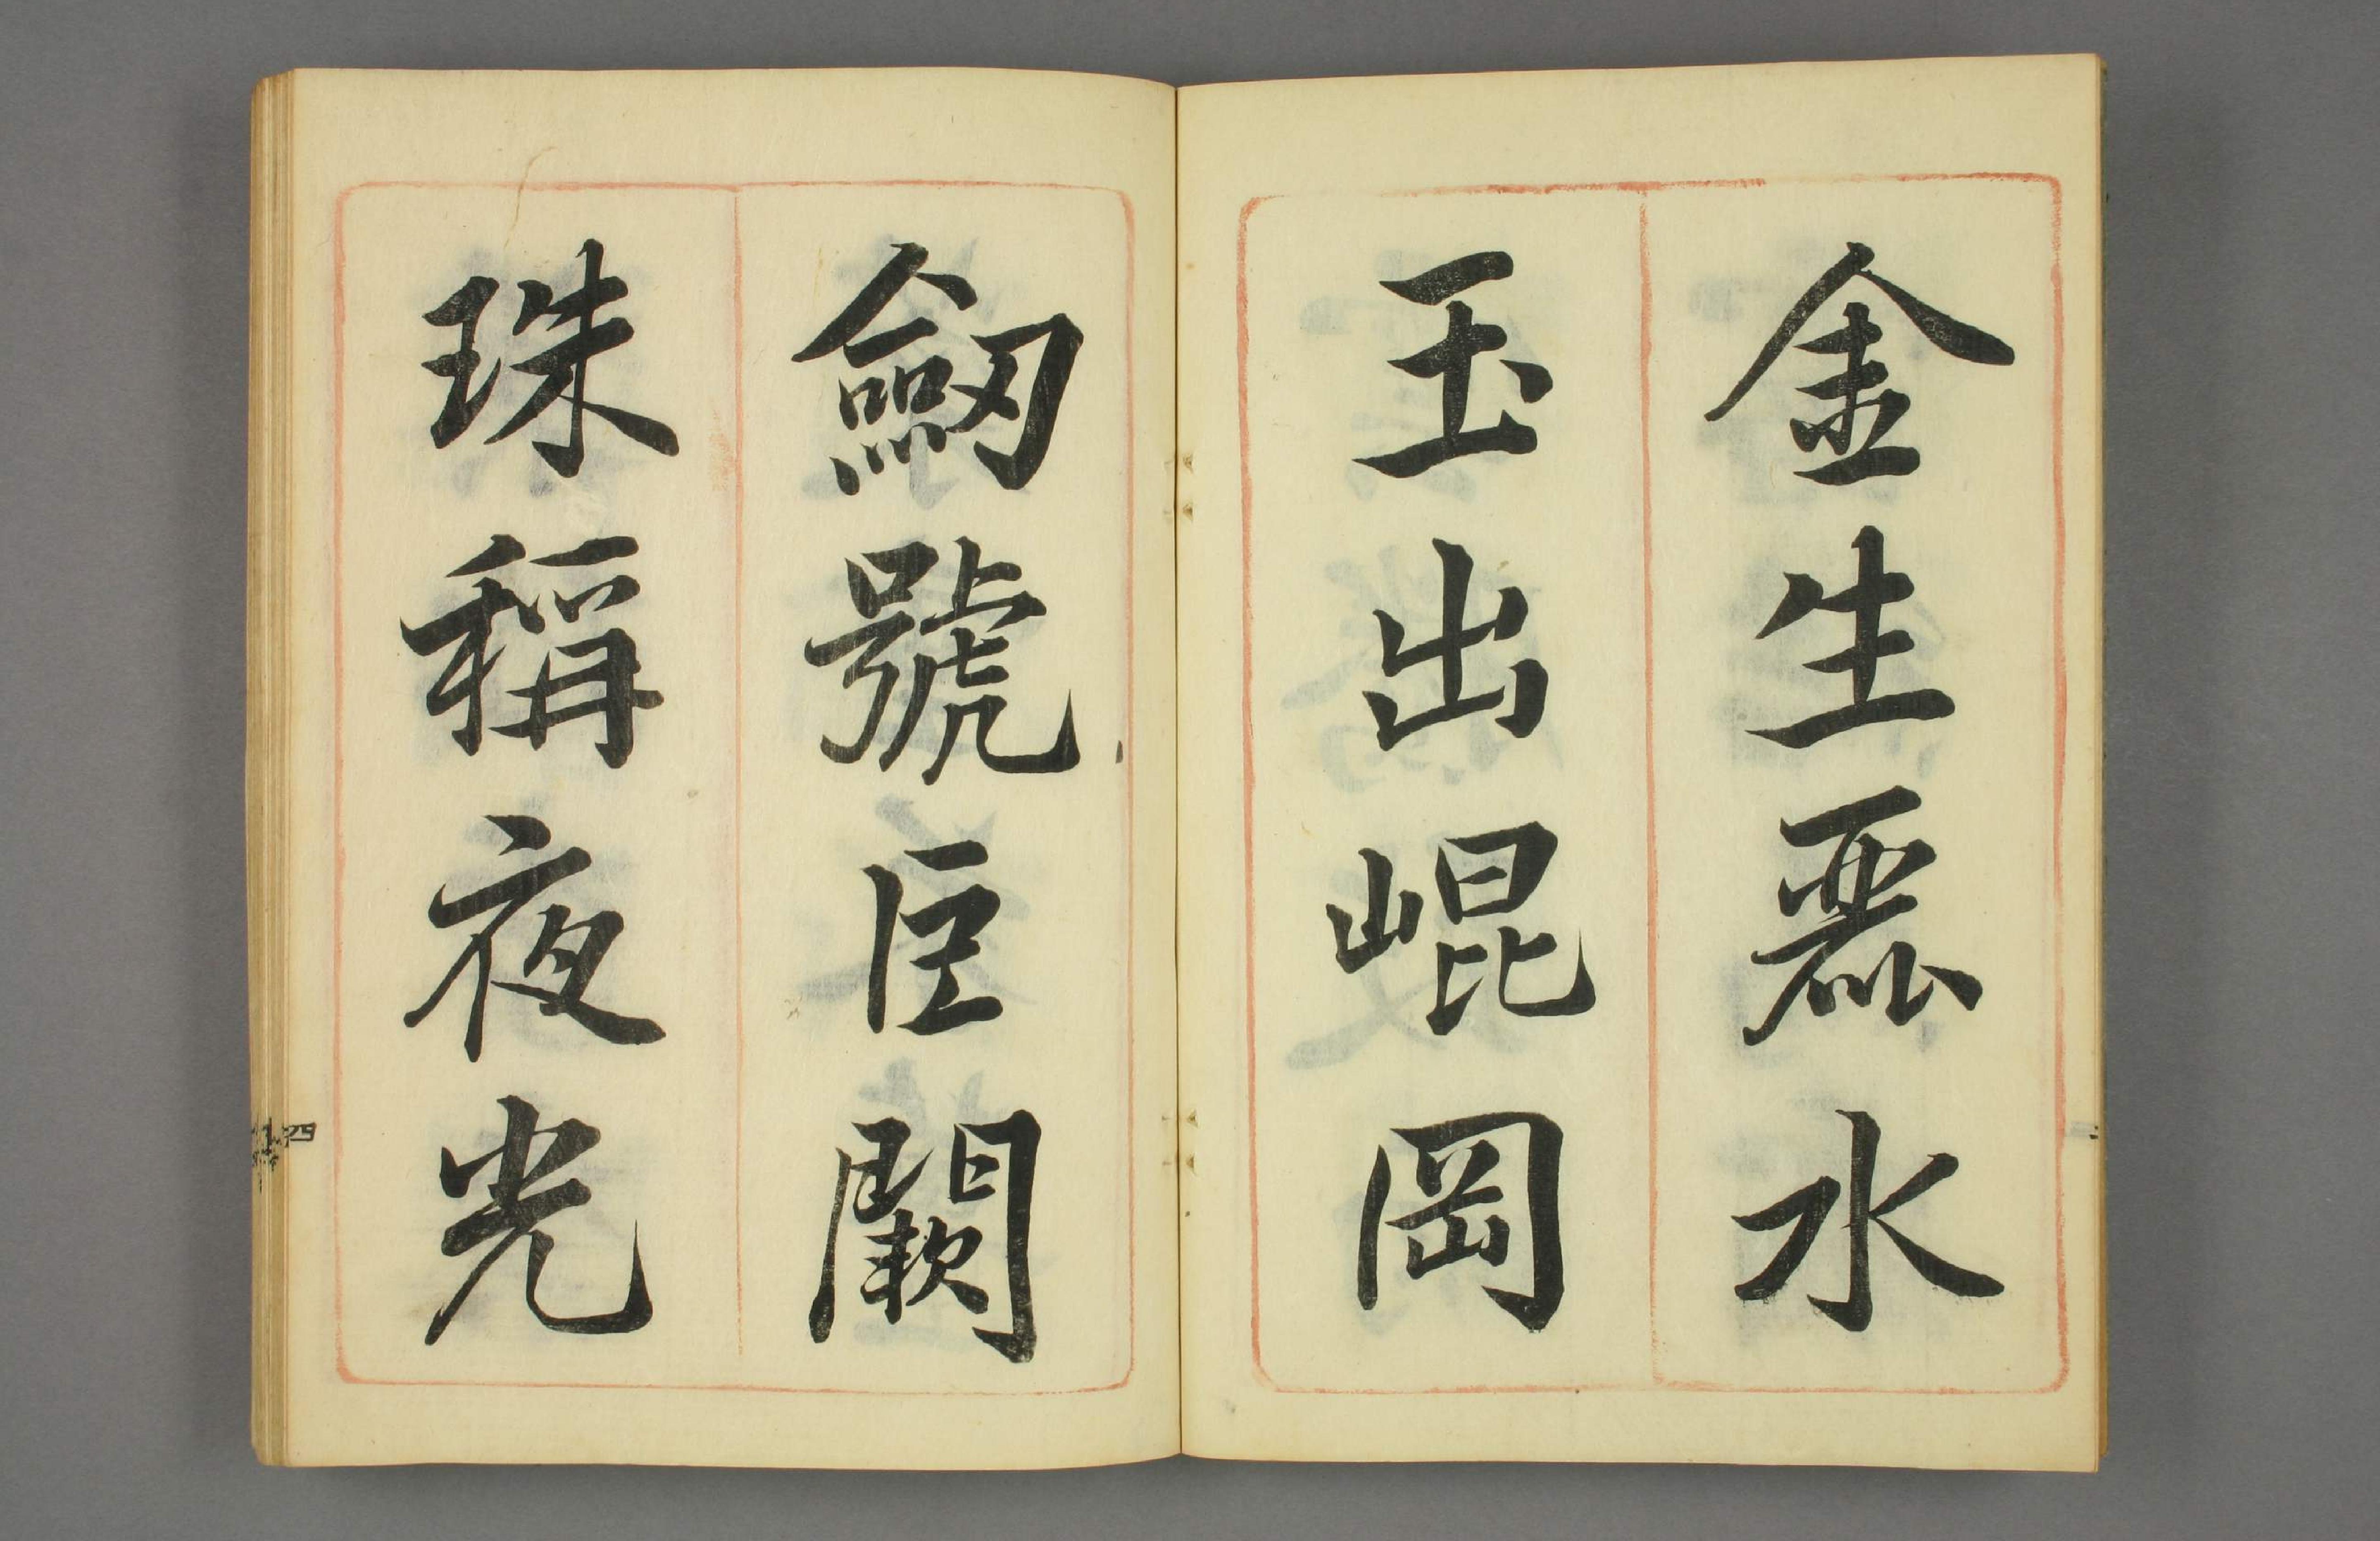 金生麗水
玉出崐岡
劒號巨闕
珠稱夜光
四